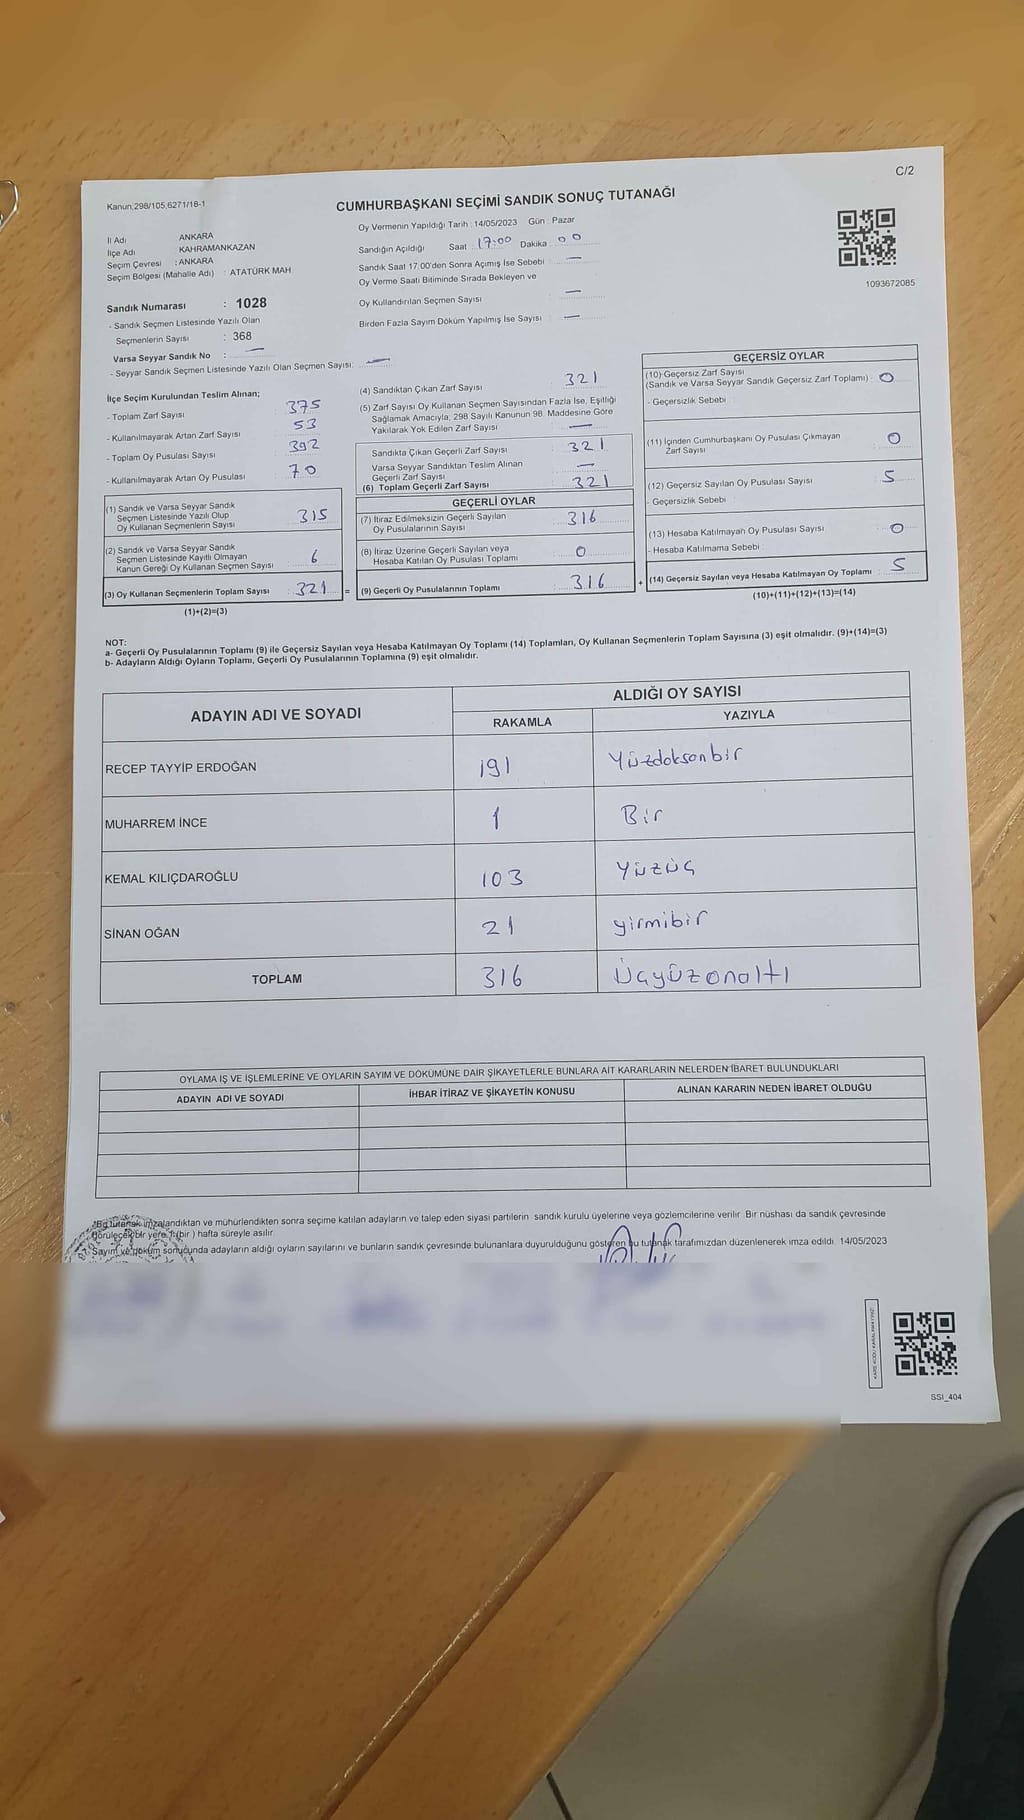 C/2
Kanun.298/105,6271/18-1
CUMHURBAŞKANI SEÇİMİ SANDIK SONUÇ TUTANAĞI
1093672085
İl Adı ANKARA
İlçe Adı KAHRAMANKAZAN
Seçim Çevresi : ANKARA
Seçim Bölgesi (Mahalle Adı) : ATATÜRK MAH
Sandık Numarası : 1028
- Sandık Seçmen Listesinde Yazılı Olan
Seçmenlerin Sayısı : 368
Varsa Seyyar Sandık No : —
- Seyyar Sandık Seçmen Listesinde Yazılı Olan Seçmen Sayısı: —
Oy Vermenin Yapıldığı Tarih : 14/05/2023 Gün : Pazar
Sandığın Açıldığı Saat : 17:00 Dakika : 00
Sandık Saat 17:00'den Sonra Açımış İse Sebebi : —
Oy Verme Saati Bitiminde Sırada Bekleyen ve
Oy Kullandırılan Seçmen Sayısı : —
Birden Fazla Sayım Döküm Yapılmış İse Sayısı : —
İlçe Seçim Kurulundan Teslim Alınan;
- Toplam Zarf Sayısı : 375
- Kullanılmayarak Artan Zarf Sayısı : 53
- Toplam Oy Pusulası Sayısı : 392
- Kullanılmayarak Artan Oy Pusulası : 70
(1) Sandık ve Varsa Seyyar Sandık
Seçmen Listesinde Yazılı Olup
Oy Kullanan Seçmenlerin Sayısı : 315
(2) Sandık ve Varsa Seyyar Sandık
Seçmen Listesinde Kayıtlı Olmayan
Kanun Gereği Oy Kullanan Seçmen Sayısı : 6
(3) Oy Kullanan Seçmenlerin Toplam Sayısı : 321 =
(1)+(2)=(3)
(4) Sandıktan Çıkan Zarf Sayısı : 321
(5) Zarf Sayısı Oy Kullanan Seçmen Sayısından Fazla İse, Eşitliği
Sağlamak Amacıyla, 298 Sayılı Kanunun 98. Maddesine Göre
Yakılarak Yok Edilen Zarf Sayısı : —
Sandıkta Çıkan Geçerli Zarf Sayısı : 321
Varsa Seyyar Sandıktan Teslim Alınan
Geçerli Zarf Sayısı : —
(6) Toplam Geçerli Zarf Sayısı : 321
GEÇERLİ OYLAR
(7) İtiraz Edilmeksizin Geçerli Sayılan
Oy Pusulalarının Sayısı : 316
(8) İtiraz Üzerine Geçerli Sayılan veya
Hesaba Katılan Oy Pusulası Toplamı : 0
(9) Geçerli Oy Pusulalarının Toplamı : 316 +
GEÇERSİZ OYLAR
(10) Geçersiz Zarf Sayısı
(Sandık ve Varsa Seyyar Sandık Geçersiz Zarf Toplamı) : 0
- Geçersizlik Sebebi :
(11) İçinden Cumhurbaşkanı Oy Pusulası Çıkmayan
Zarf Sayısı : 0
(12) Geçersiz Sayılan Oy Pusulası Sayısı : 5
- Geçersizlik Sebebi :
(13) Hesaba Katılmayan Oy Pusulası Sayısı : 0
- Hesaba Katılmama Sebebi :
(14) Geçersiz Sayılan veya Hesaba Katılmayan Oy Toplamı : 5
(10)+(11)+(12)+(13)=(14)
NOT:
a- Geçerli Oy Pusulalarının Toplamı (9) ile Geçersiz Sayılan veya Hesaba Katılmayan Oy Toplamı (14) Toplamları, Oy Kullanan Seçmenlerin Toplam Sayısına (3) eşit olmalıdır. (9)+(14)=(3)
b- Adayların Aldığı Oyların Toplamı, Geçerli Oy Pusulalarının Toplamına (9) eşit olmalıdır.
ADAYIN ADI VE SOYADI ALDIĞI OY SAYISI
RAKAMLA YAZIYLA
RECEP TAYYİP ERDOĞAN 191 Yüzdoksanbir
MUHARREM İNCE 1 Bir
KEMAL KILIÇDAROĞLU 103 Yüzüç
SİNAN OĞAN 21 yirmibir
TOPLAM 316 Üçyüzonaltı
OYLAMA İŞ VE İŞLEMLERİNE VE OYLARIN SAYIM VE DÖKÜMÜNE DAİR ŞİKAYETLERLE BUNLARA AİT KARARLARIN NELERDEN İBARET BULUNDUKLARI
ADAYIN ADI VE SOYADI İHBAR İTİRAZ VE ŞİKAYETİN KONUSU ALINAN KARARIN NEDEN İBARET OLDUĞU
*Bu tutanak imzalandıktan ve mühürlendikten sonra seçime katılan adayların ve talep eden siyasi partilerin sandık kurulu üyelerine veya gözlemcilerine verilir. Bir nüshası da sandık çevresinde
görülecek bir yere 1 (bir ) hafta süreyle asılır.
*Sayım ve döküm sonucunda adayların aldığı oyların sayılarını ve bunların sandık çevresinde bulunanlara duyurulduğunu gösteren bu tutanak tarafımızdan düzenlenerek imza edildi. 14/05/2023
SSI_404